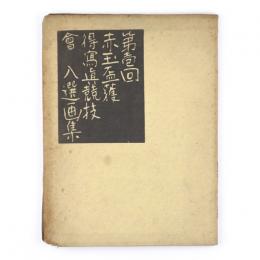 第壱回
赤玉盃獲
得寫真競技
會入選画集